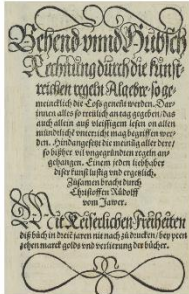 Behend vnnd Hubsch
Rechnung durch die kunst-
reichen regeln Algebre/so ge-
meincklich die Coss geneñt werden. Dar-
innen alles so treülich an tag gegeben/das
auch allein auß vleissigem lesen on allen
mündtlichē vnterricht mag begriffen wer-
den. Hindangesetzt die meinũg aller dere/
so bißher vil vngegründten regeln an-
gehangen. Einem jeden liebhaber
diser kunst lustig vnd ergetzlich.
Zusamen bracht durch
Christoffen Rudolff
vom Jawer.
Mit Keiserlichen Freiheiten
diß bůch in dreiē jaren nit nach zů drucken/bey peen
zehen marck golds vnd verlierung der bücher.